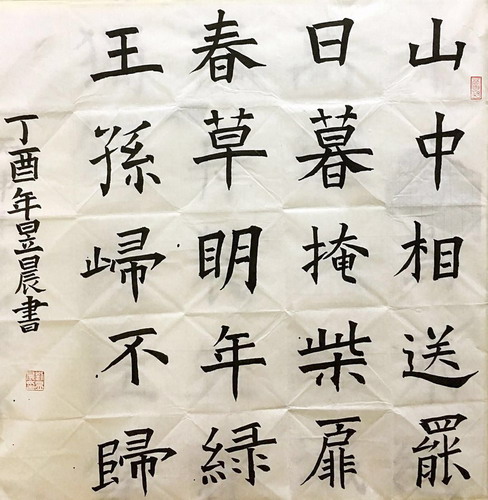 山中相送罷
日暮掩柴扉
春草明年綠
王孫歸不歸
丁酉年昱晨書